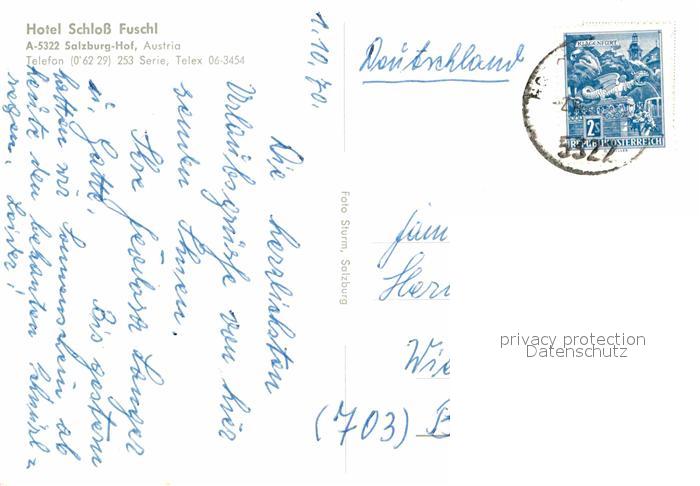 Hotel Schloß Fuschl
A-5322 Salzburg-Hof, Austria
Telefon (0'62 29) 253 Serie, Telex 06-3454
1. 10. 70.
Die herrlichsten
Urlaubsgrüße von hier
senden Ihnen,
Ihre
u. Gatte.
Bis gestern
hatten wir Sonnenschein ab
heute den bekannten Schnürl=
regen. Leider!
Foto Sturm, Salzburg
Deutschland
KLAGENFURT
2S
REPUBLIK ÖSTERREICH
5322
Fam
Herr
Wie
(703) B
privacy protection
Datenschutz